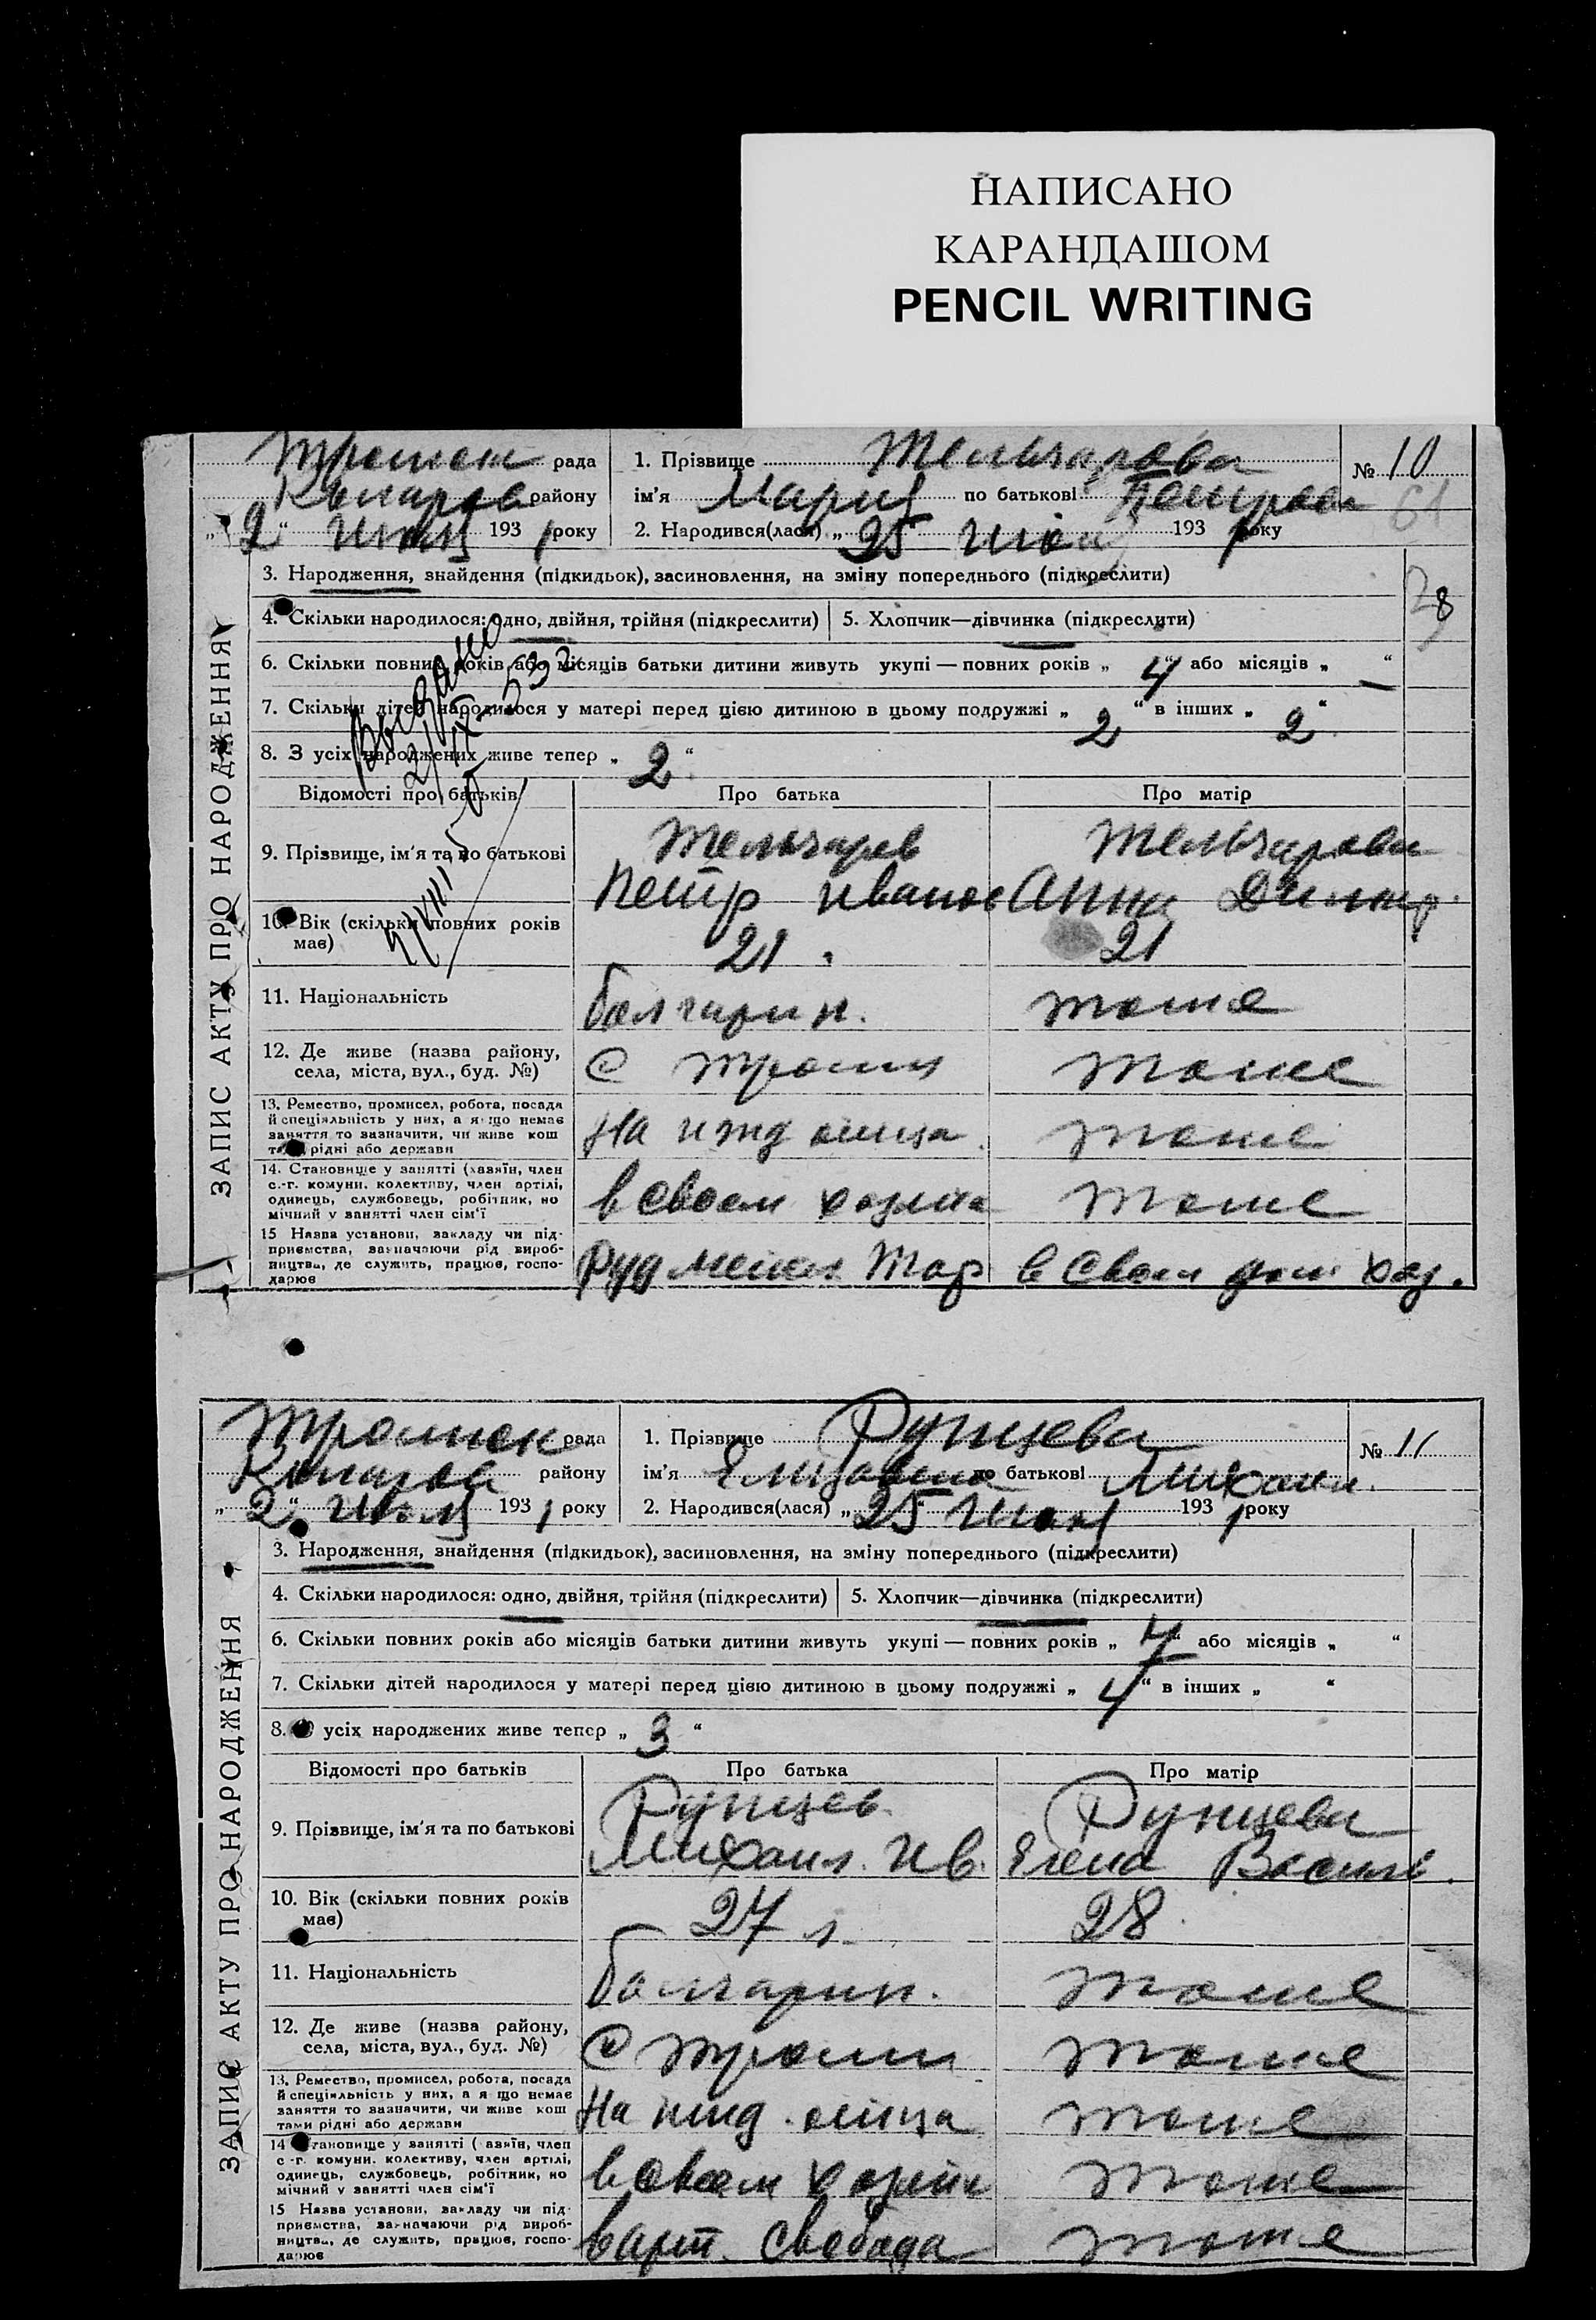 НАПИСАНО
КАРАНДАШОМ
PENCIL WRITING
рада
1. Прізвище Тельчарова
№ 10
району
ім'я Мария по батькові Петров
61
„ 2 “ июля 193 1 року
2. Народився(лася) „ 25 “ июня 193 1 року
3. Народження, знайдення (підкидьок), засиновлення, на зміну попереднього (підкреслити)
28
4. Скільки народилося: одно, двійня, трійня (підкреслити)
5. Хлопчик—дівчинка (підкреслити)
6. Скільки повних років або місяців батьки дитини живуть укупі — повних років „ 4 “ або місяців „ — “
7. Скільки дітей народилося у матері перед цією дитиною в цьому подружжі „ 2 “ в інших „ 2 “
8. З усіх народжених живе тепер „ 2 “
Відомості про батьків
Про батька
Про матір
9. Прізвище, ім'я та по батькові
Тельчаров
Петр Иванов
Тельчарова
Анна Димитр.
10. Вік (скільки повних років має)
21
21
11. Національність
болгарин.
тоже
12. Де живе (назва району, села, міста, вул., буд. №)
С Трояны
тоже
13. Ремество, промисел, робота, посада й спеціяльність у них, а якщо немає заняття то зазначити, чи живе коштами рідні або держави
На ижд отца
тоже
14. Становище у занятті (хазяїн, член с.-г. комуни, колективу, член артілі, одинець, службовець, робітник, помічний у занятті член сім'ї
в своем хозяйс
тоже
15 Назва установи, закладу чи підприємства, зазначаючи рід виробництва, де служить, працює, господарює
в своем дом хоз.
выдано
ЗАПИС АКТУ ПРО НАРОДЖЕННЯ
рада
1. Прізвище Рунцева
№ 11
району
ім'я Елизавета по батькові Михаил.
„ 2 “ июля 193 1 року
2. Народився(лася) „ 25 “ июня 193 1 року
3. Народження, знайдення (підкидьок), засиновлення, на зміну попереднього (підкреслити)
4. Скільки народилося: одно, двійня, трійня (підкреслити)
5. Хлопчик—дівчинка (підкреслити)
6. Скільки повних років або місяців батьки дитини живуть укупі — повних років „ 7 “ або місяців „ “
7. Скільки дітей народилося у матері перед цією дитиною в цьому подружжі „ 4 “ в інших „ “
8. З усіх народжених живе тепер „ 3 “
Відомості про батьків
Про батька
Про матір
9. Прізвище, ім'я та по батькові
Рунцев
Михаил. Ив.
Рунцева
Елена Васильев.
10. Вік (скільки повних років має)
27 л.
28
11. Національність
болгарин.
тоже
12. Де живе (назва району, села, міста, вул., буд. №)
С Трояны
тоже
13. Ремество, промисел, робота, посада й спеціяльність у них, а якщо немає заняття то зазначити, чи живе коштами рідні або держави
На ижд. отца
тоже
14 Становище у занятті (хазяїн, член с.-г. комуни, колективу, член артілі, одинець, службовець, робітник, помічний у занятті член сім'ї
в своем хозяйс
тоже
15 Назва установи, закладу чи підприємства, зазначаючи рід виробництва, де служить, працює, господарює
в арт. Свобода
тоже
ЗАПИС АКТУ ПРО НАРОДЖЕННЯ